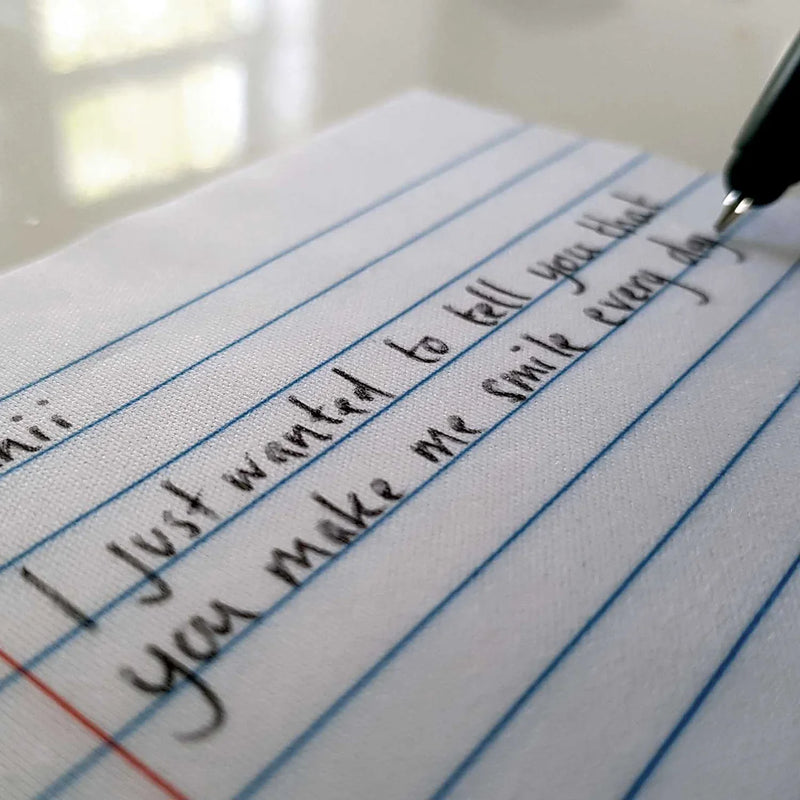 I just wanted to tell you that
you make me smile every day